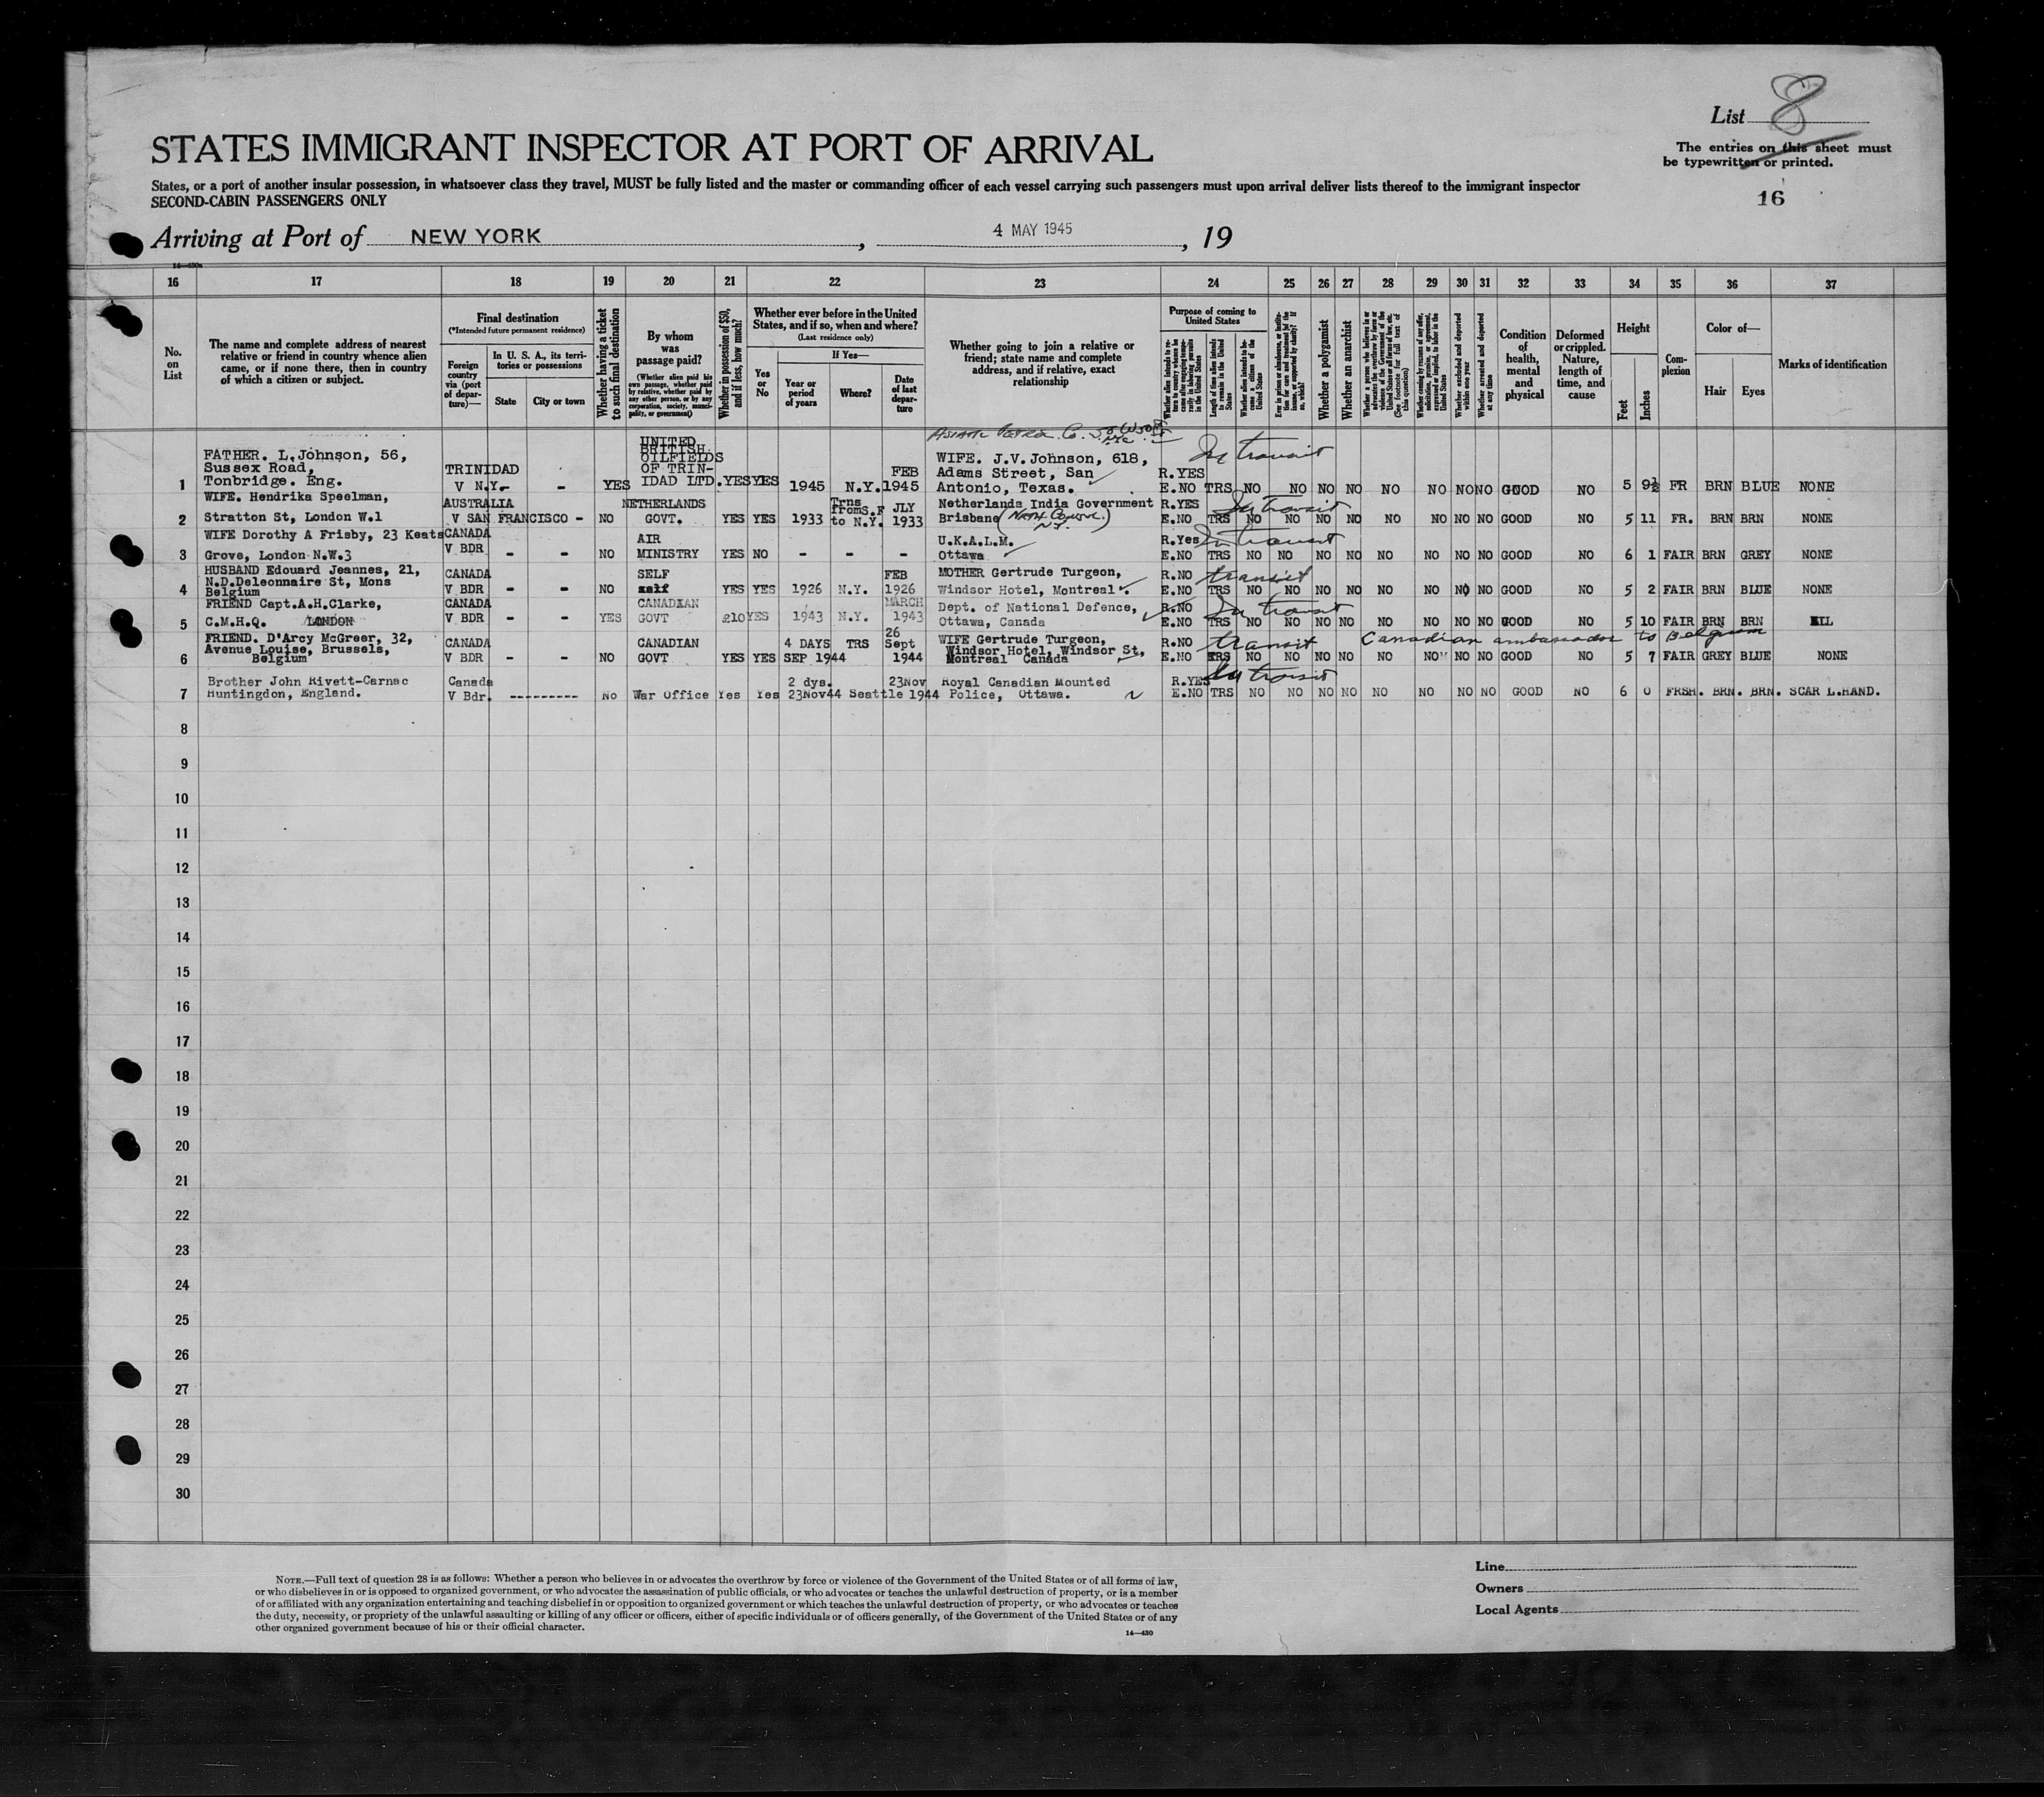 List 8
The entries on this sheet must
be typewritten or printed.
16
STATES IMMIGRANT INSPECTOR AT PORT OF ARRIVAL
States, or a port of another insular possession, in whatsoever class they travel, MUST be fully listed and the master or commanding officer of each vessel carrying such passengers must upon arrival deliver lists thereof to the immigrant inspector
SECOND-CABIN PASSENGERS ONLY
Arriving at Port of NEW YORK , 4 MAY 1945 , 19
16 17 18 19 20 21 22 23 24 25 26 27 28 29 30 31 32 33 34 35 36 37
No. on List
The name and complete address of nearest
relative or friend in country whence alien
came, or if none there, then in country
of which a citizen or subject.
Final destination
(*Intended future permanent residence)
Foreign country via (port of departure)—
In U. S. A., its territories or possessions
State
City or town
Whether having a ticket to such final destination
By whom was passage paid?
(Whether alien paid his own passage, whether paid by relative, whether paid by any other person, or by any corporation, society, municipality, or government)
Whether in possession of $50, and if less, how much?
Whether ever before in the United
States, and if so, when and where?
(Last residence only)
Yes or No
If Yes—
Year or period of years
Where?
Date of last departure
Whether going to join a relative or
friend; state name and complete
address, and if relative, exact
relationship
Purpose of coming to United States
Length of time alien intends to remain in the United States
Whether alien intends to become a citizen of the United States
Whether a polygamist
Whether an anarchist
Whether excluded and deported within one year
Whether arrested and deported at any time
Condition of health, mental and physical
Deformed or crippled. Nature, length of time, and cause
Height
Feet
Inches
Complexion
Color of—
Hair
Eyes
Marks of identification
Asiatic Petrol. Co. 50 W 50 St NYC
1 FATHER. L.Johnson, 56, Sussex Road, Tonbridge. Eng. TRINIDAD V N.Y. - - YES UNITED BRITISH OILFIELDS OF TRINIDAD LTD. YES YES 1945 N.Y. FEB 1945 WIFE. J.V.Johnson, 618, Adams Street, San Antonio, Texas. R.YES E.NO TRS NO In transit NO NO NO NO NO NO NO GOOD NO 5 9½ FR BRN BLUE NONE
2 WIFE. Hendrika Speelman, Stratton St, London W.1 AUSTRALIA V SAN FRANCISCO - NO NETHERLANDS GOVT. YES YES 1933 Trns from S.F to N.Y. JLY 1933 Netherlands India Government Brisbane R.YES E.NO TRS NO In transit NO NO NO NO NO NO NO GOOD NO 5 11 FR. BRN BRN NONE
3 WIFE Dorothy A Frisby, 23 Keats Grove, London N.W.3 CANADA V BDR - - NO AIR MINISTRY YES NO - - - U.K.A.L.M. Ottawa R.Yes E.NO TRS NO In transit NO NO NO NO NO NO NO GOOD NO 6 1 FAIR BRN GREY NONE
4 HUSBAND Edouard Jeannes, 21, N.D.Deleonnaire St, Mons Belgium CANADA V BDR - - NO SELF self YES YES 1926 N.Y. FEB 1926 MOTHER Gertrude Turgeon, Windsor Hotel, Montreal. R.NO E.NO TRS NO transit NO NO NO NO NO NO NO GOOD NO 5 2 FAIR BRN BLUE NONE
5 FRIEND Capt.A.H.Clarke, C.M.H.Q. LONDON CANADA V BDR - - YES CANADIAN GOVT £10 YES 1943 N.Y. MARCH 1943 Dept. of National Defence, Ottawa, Canada R.NO E.NO TRS NO In transit NO NO NO NO NO NO NO GOOD NO 5 10 FAIR BRN BRN
6 FRIEND. D'Arcy McGreer, 32, Avenue Louise, Brussels, Belgium CANADA V BDR - - NO CANADIAN GOVT YES YES 4 DAYS SEP 1944 TRS 26 Sept 1944 WIFE Gertrude Turgeon, Windsor Hotel, Windsor St, Montreal Canada R.NO E.NO TRS NO transit Canadian ambassador to Belgium NO NO NO NO NO NO NO GOOD NO 5 7 FAIR GREY BLUE NONE
7 Brother John Rivett-Carnac Huntingdon, England. Canada V Bdr. ---------- No War Office Yes Yes 2 dys. 23Nov44 Seattle 23Nov 1944 Royal Canadian Mounted Police, Ottawa. R.YES E.NO TRS NO In transit NO NO NO NO NO NO NO GOOD NO 6 0 FRSH. BRN. BRN. SCAR L.HAND.
8
9
10
11
12
13
14
15
16
17
18
19
20
21
22
23
24
25
26
27
28
29
30
NOTE.—Full text of question 28 is as follows: Whether a person who believes in or advocates the overthrow by force or violence of the Government of the United States or of all forms of law,
or who disbelieves in or is opposed to organized government, or who advocates the assassination of public officials, or who advocates or teaches the unlawful destruction of property, or is a member
of or affiliated with any organization entertaining and teaching disbelief in or opposition to organized government or which teaches the unlawful destruction of property, or who advocates or teaches
the duty, necessity, or propriety of the unlawful assaulting or killing of any officer or officers, either of specific individuals or of officers generally, of the Government of the United States or of any
other organized government because of his or their official character.
14—430
Line
Owners
Local Agents